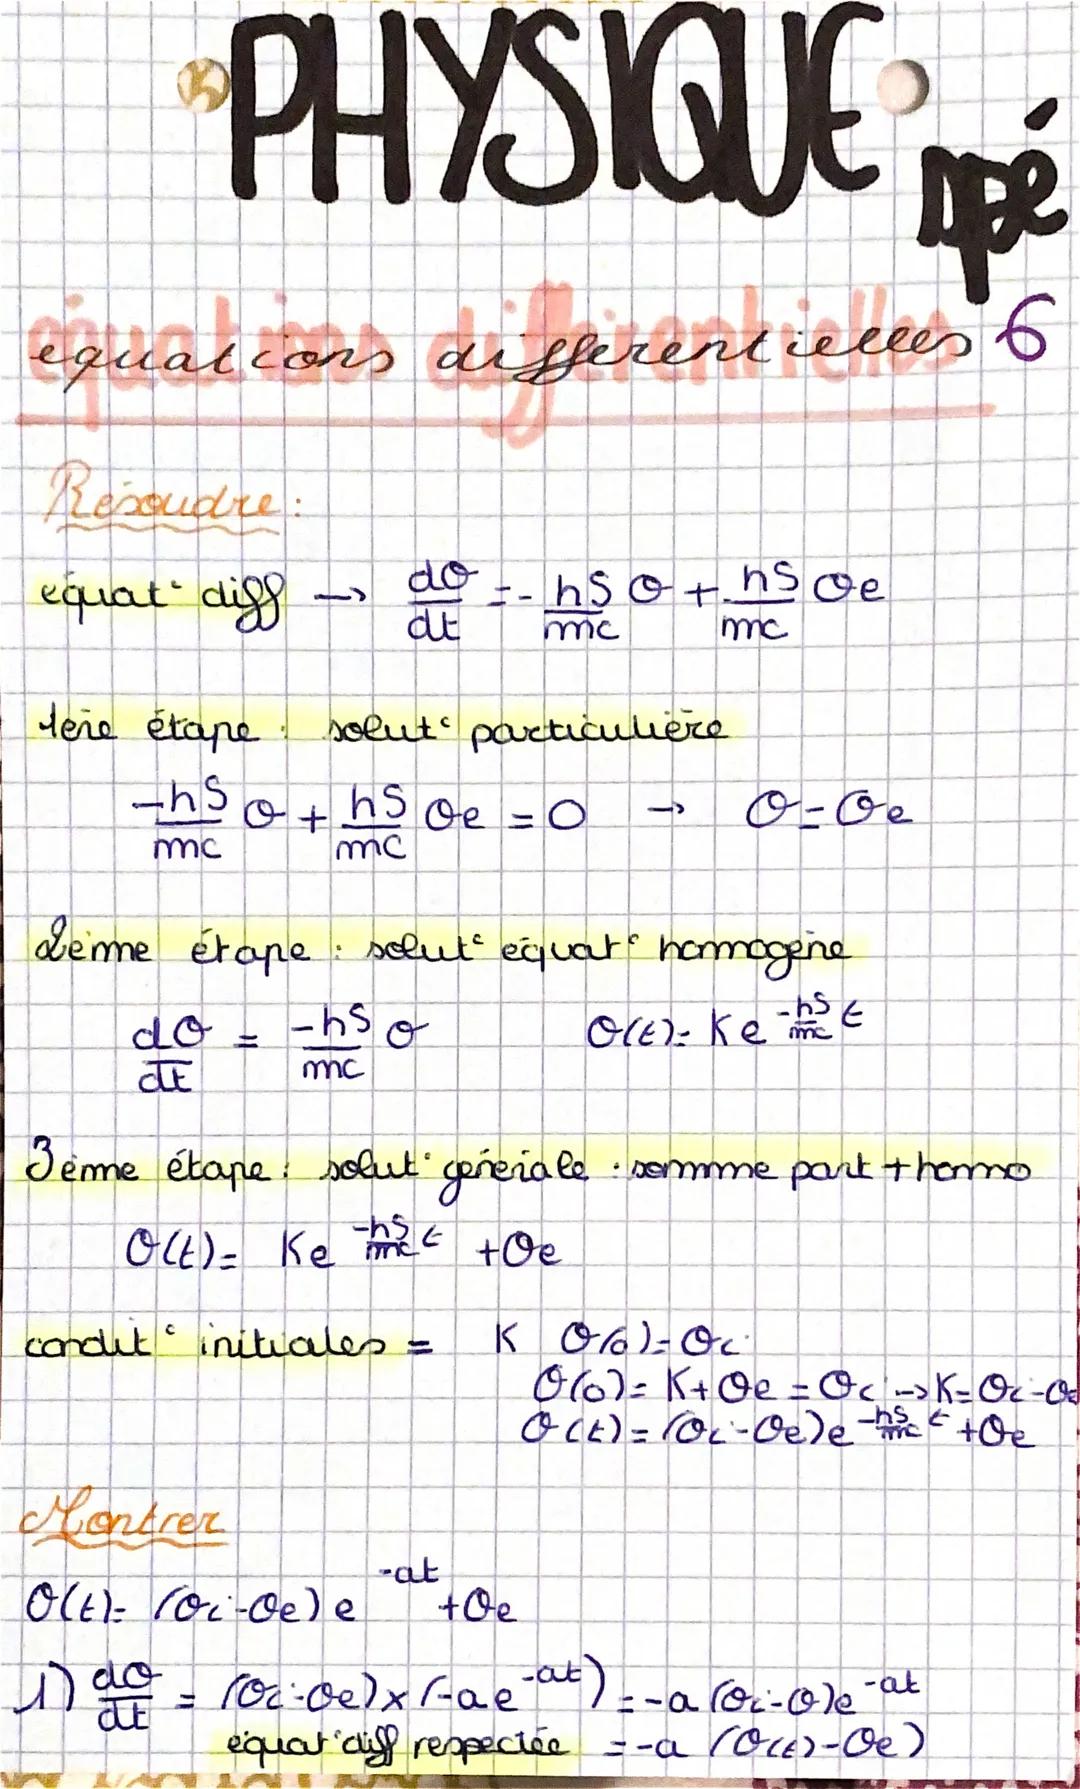 PHYSIQUE spé
équations différentielles 6
Résoudre :
équat° diff → dθ/dt = - hS/mc θ + hS/mc θe
1ère étape : solut° particulière
-hS/mc θ + hS/mc θe = 0 → θ = θe
2ème étape : solut° équat° homogène
dθ/dt = -hS/mc θ θ(t) = K e^(-hS/mc t)
3ème étape : solut° générale : somme part + homo
θ(t) = Ke^(-hS/mc t) + θe
condit° initiales = K θ(0) = θi
θ(0) = K + θe = θi → K = θi - θe
θ(t) = (θi - θe)e^(-hS/mc t) + θe
Montrer
θ(t) = (θi - θe) e^(-at) + θe
1) dθ/dt = (θi - θe) x (-a e^(-at)) = -a (θi - θ)e^(-at)
équat° diff respectée = -a (θ(t) - θe)